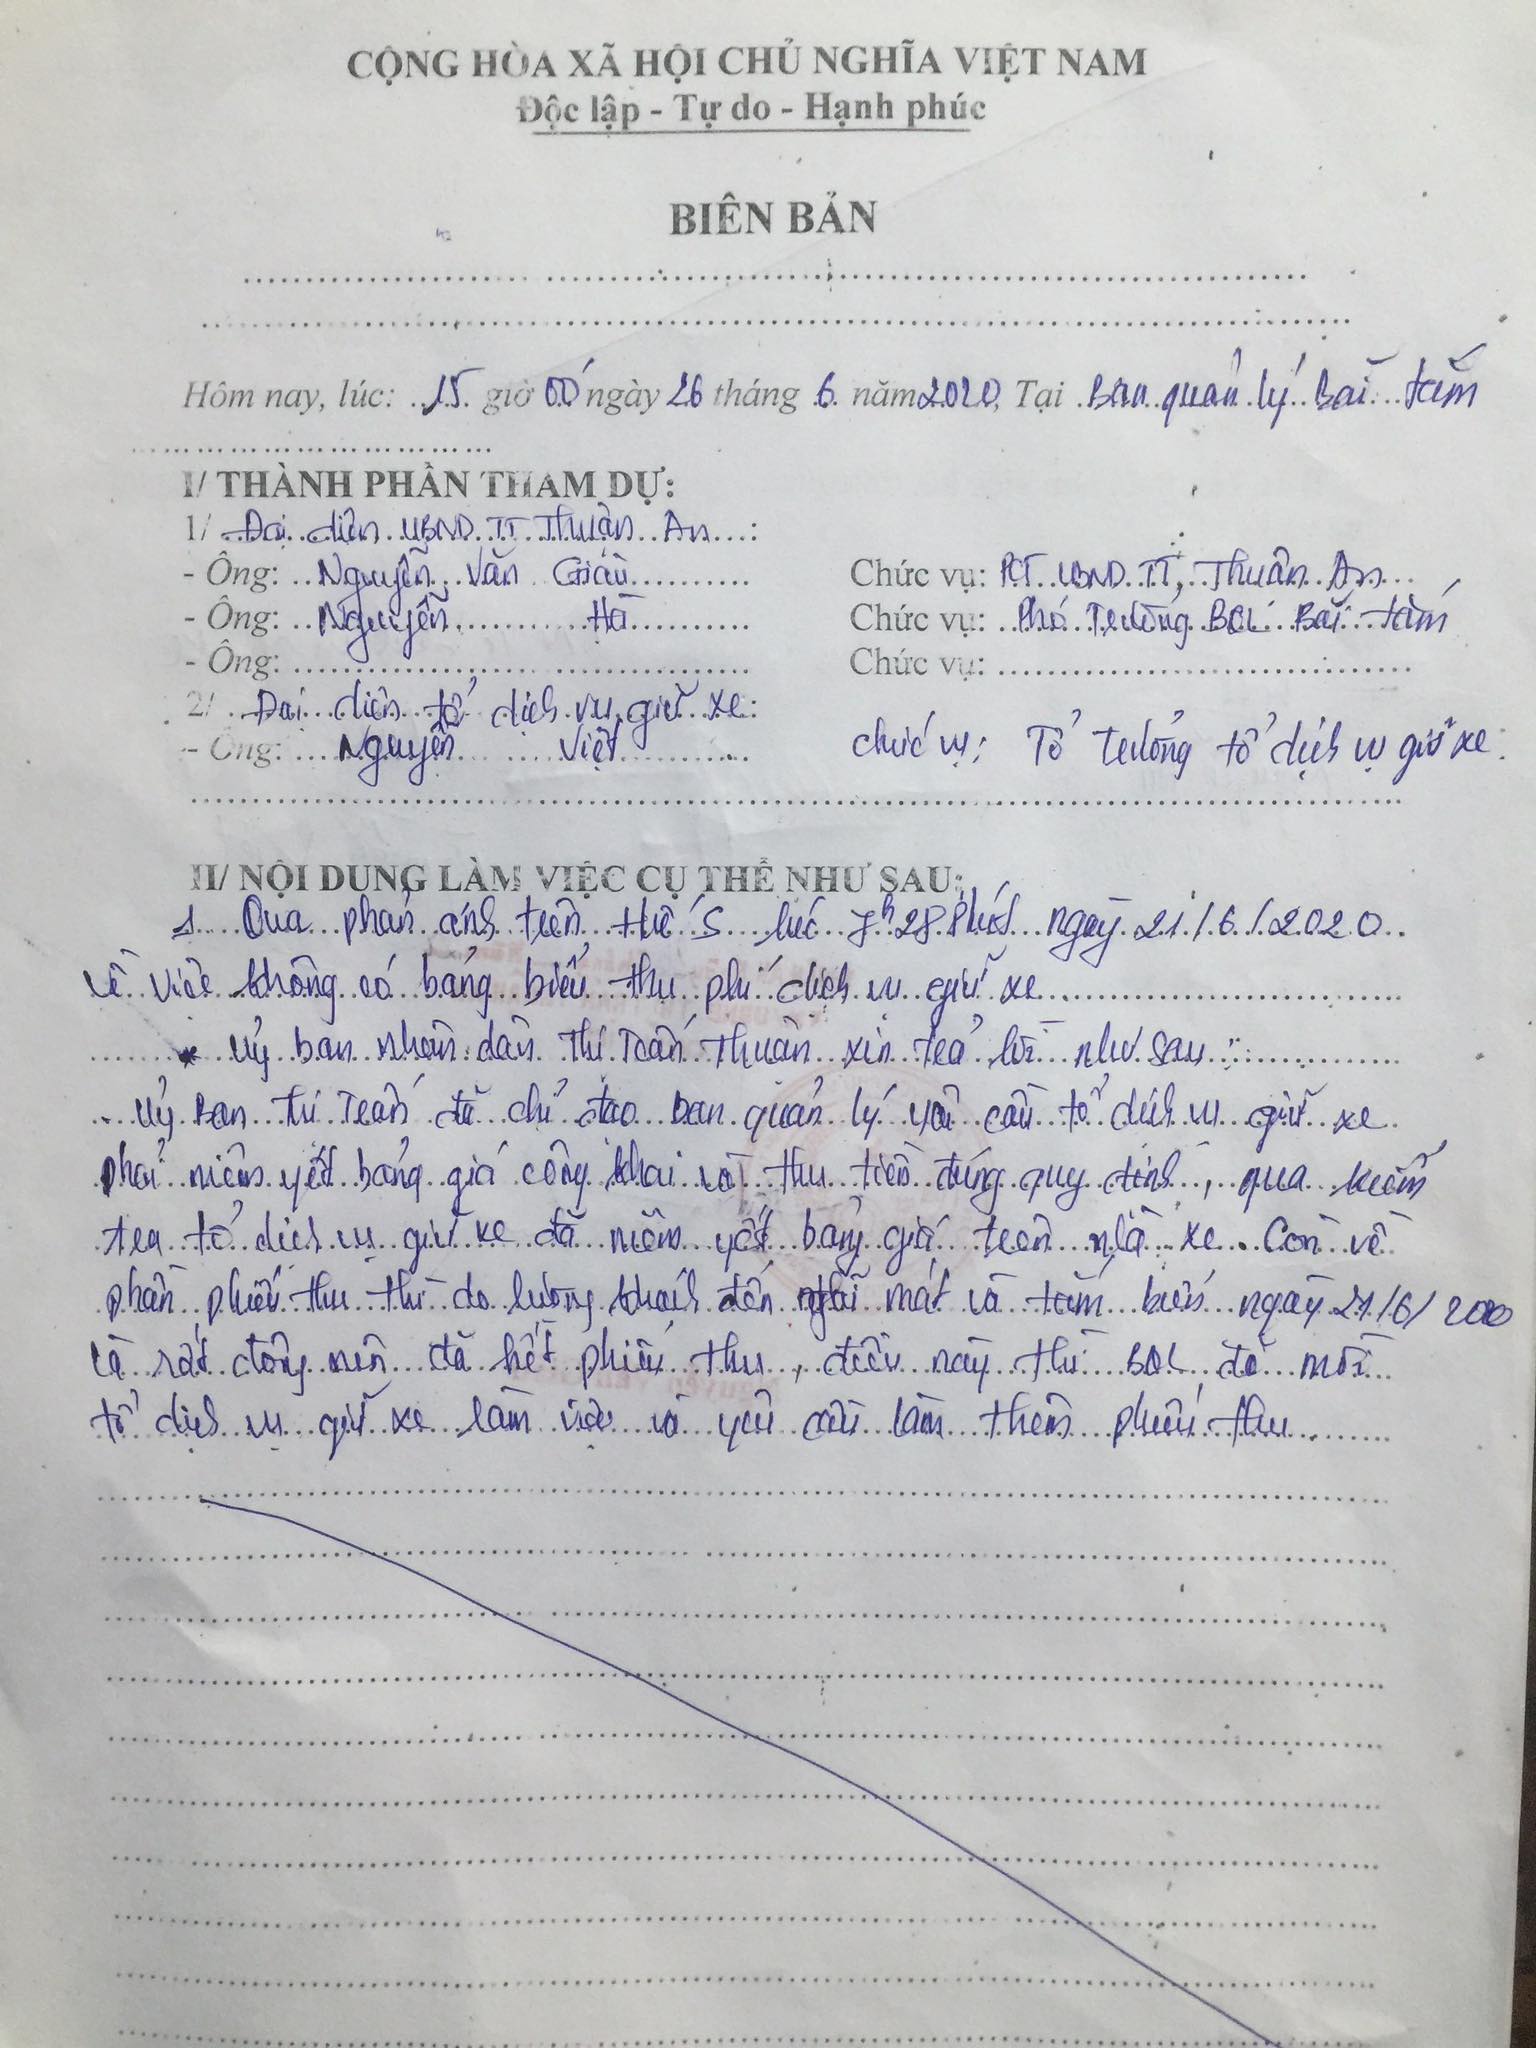 CỘNG HÒA XÃ HỘI CHỦ NGHĨA VIỆT NAM
Độc lập - Tự do - Hạnh phúc
BIÊN BẢN
Hôm nay, lúc: 15 giờ 00 ngày 26 tháng 6 năm 2020, Tại Ban quản lý Bãi tắm
I/ THÀNH PHẦN THAM DỰ:
1/ Đại diện UBND TT Thuận An :
- Ông: Nguyễn Văn Giàu Chức vụ: PCT UBND TT, Thuận An
- Ông: Nguyễn Hà Chức vụ: Phó Trưởng BQL Bãi tắm
- Ông: Chức vụ:
2/ Đại diện tổ dịch vụ giữ xe:
- Ông: Nguyễn Việt chức vụ: Tổ trưởng tổ dịch vụ giữ xe
II/ NỘI DUNG LÀM VIỆC CỤ THỂ NHƯ SAU:
1. Qua phản ánh trên Huế S lúc 7h28 phút ngày 21/6/2020
về việc không có bảng biểu thu phí dịch vụ giữ xe
* Uỷ ban nhân dân Thị Trấn Thuận xin trả lời như sau :
Uỷ Ban thị Trấn đã chỉ đạo ban quản lý yêu cầu tổ dịch vụ giữ xe
phải niêm yết bảng giá công khai và thu tiền đúng quy định, qua kiểm
tra tổ dịch vụ giữ xe đã niêm yết bảng giá trên nhà xe. Còn về
phần phiếu thu thì do lượng khách đến nghĩ mát và tắm biển ngày 21/6/2020
là rất đông nên đã hết phiếu thu, điều này thì BQL đã mời
tổ dịch vụ giữ xe làm việc và yêu cầu làm thêm phiếu thu